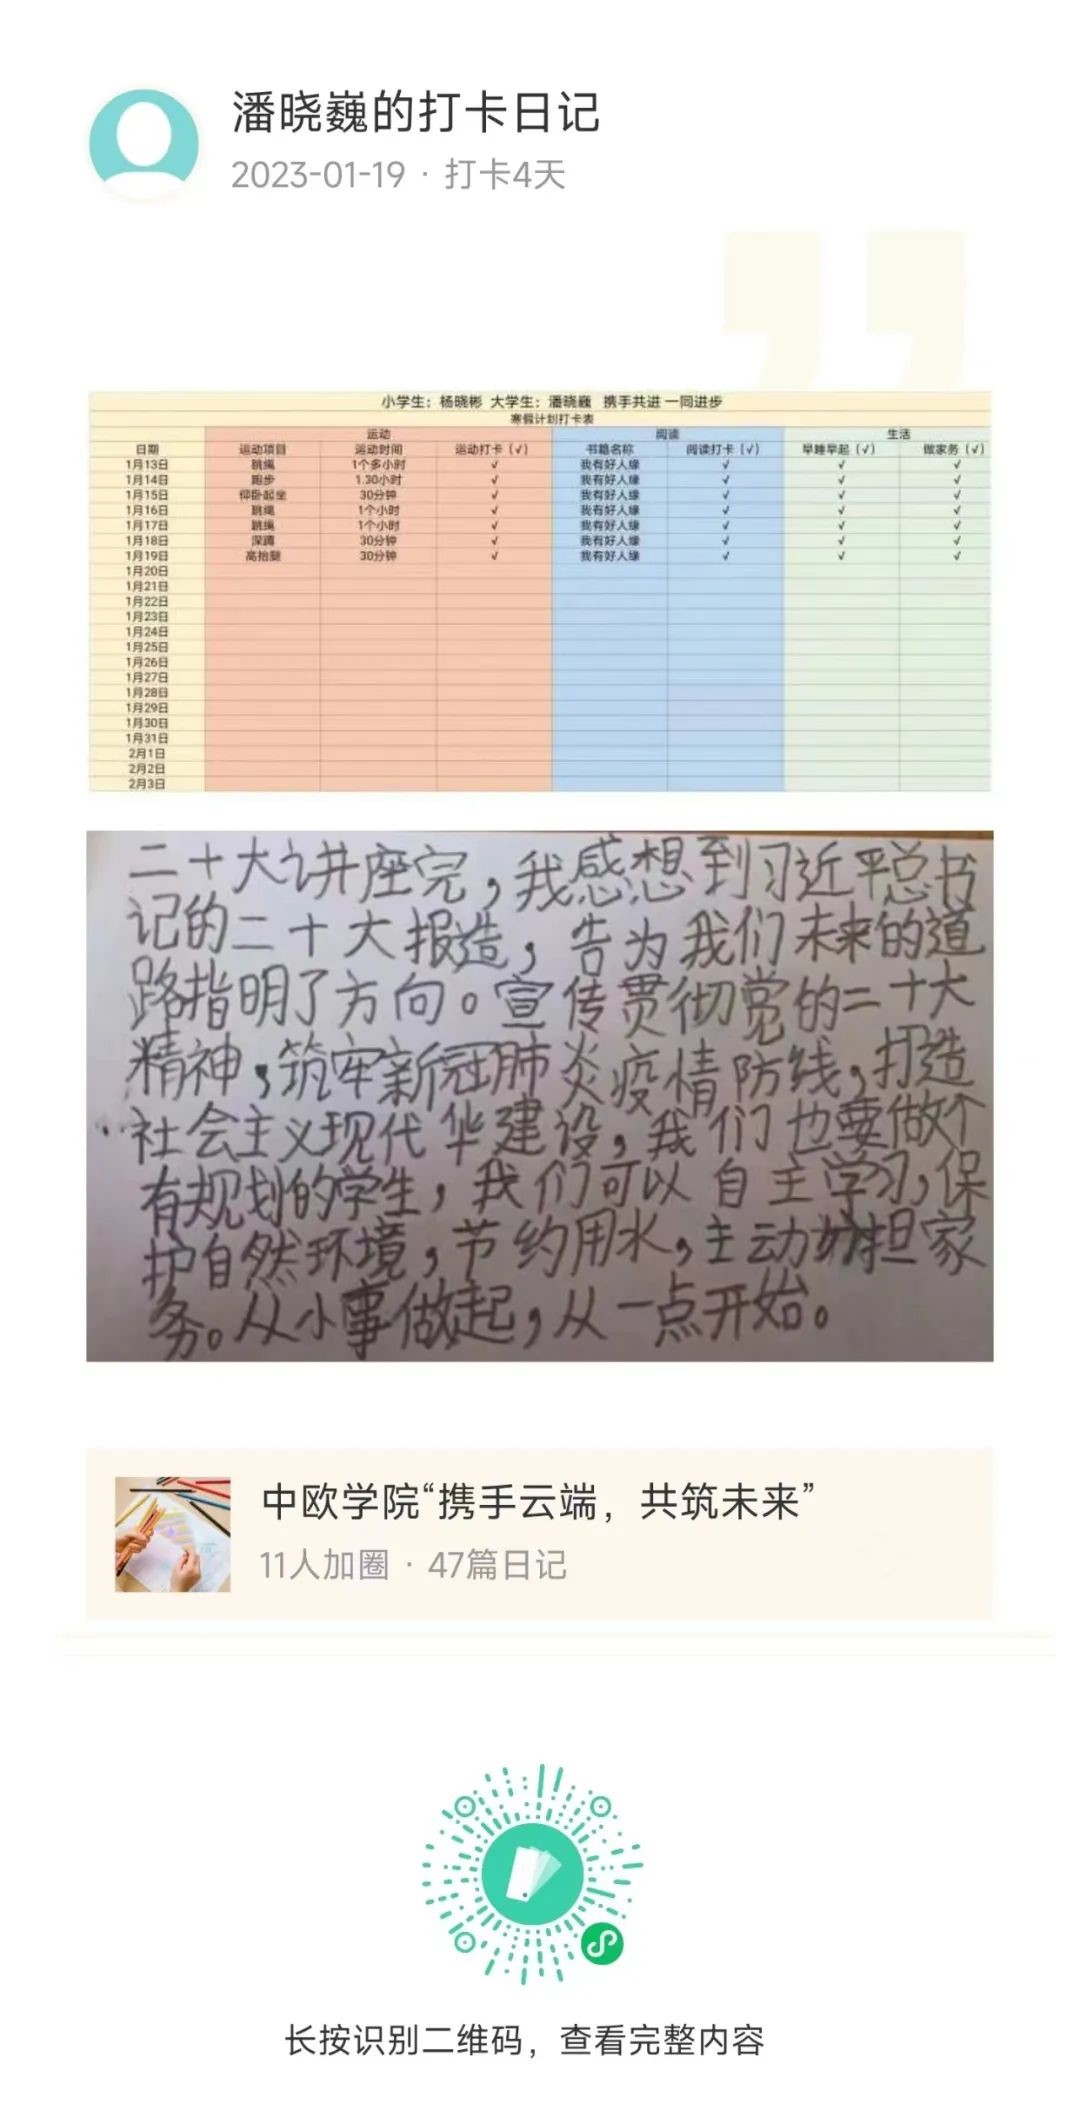 潘晓巍的打卡日记
2023-01-19 · 打卡4天
小学生：杨晓彬 大学生：潘晓巍 携手共进 一同进步
寒假计划打卡表
运动 阅读 生活
日期 运动项目 运动时间 运动打卡（√） 书籍名称 阅读打卡（√） 早睡早起（√） 做家务（√）
1月13日 跳绳 1个多小时 √ 我有好人缘 √ √ √
1月14日 跑步 1.30小时 √ 我有好人缘 √ √ √
1月15日 仰卧起坐 30分钟 √ 我有好人缘 √ √ √
1月16日 跳绳 1个小时 √ 我有好人缘 √ √ √
1月17日 跳绳 1个小时 √ 我有好人缘 √ √ √
1月18日 深蹲 30分钟 √ 我有好人缘 √ √ √
1月19日 高抬腿 30分钟 √ 我有好人缘 √ √ √
1月20日
1月21日
1月22日
1月23日
1月24日
1月25日
1月26日
1月27日
1月28日
1月29日
1月30日
1月31日
2月1日
2月2日
2月3日
二十大讲座完，我感想到习近平总书
记的二十大报造，告为我们未来的道
路指明了方向。宣传贯彻党的二十大
精神，筑牢新冠肺炎疫情防线，打造
社会主义现代华建设，我们也要做个
有规划的学生，我们可以自主学习，保
护自然环境，节约用水，主动担家
务。从小事做起，从一点开始。
中欧学院“携手云端，共筑未来”
11人加圈 · 47篇日记
长按识别二维码，查看完整内容